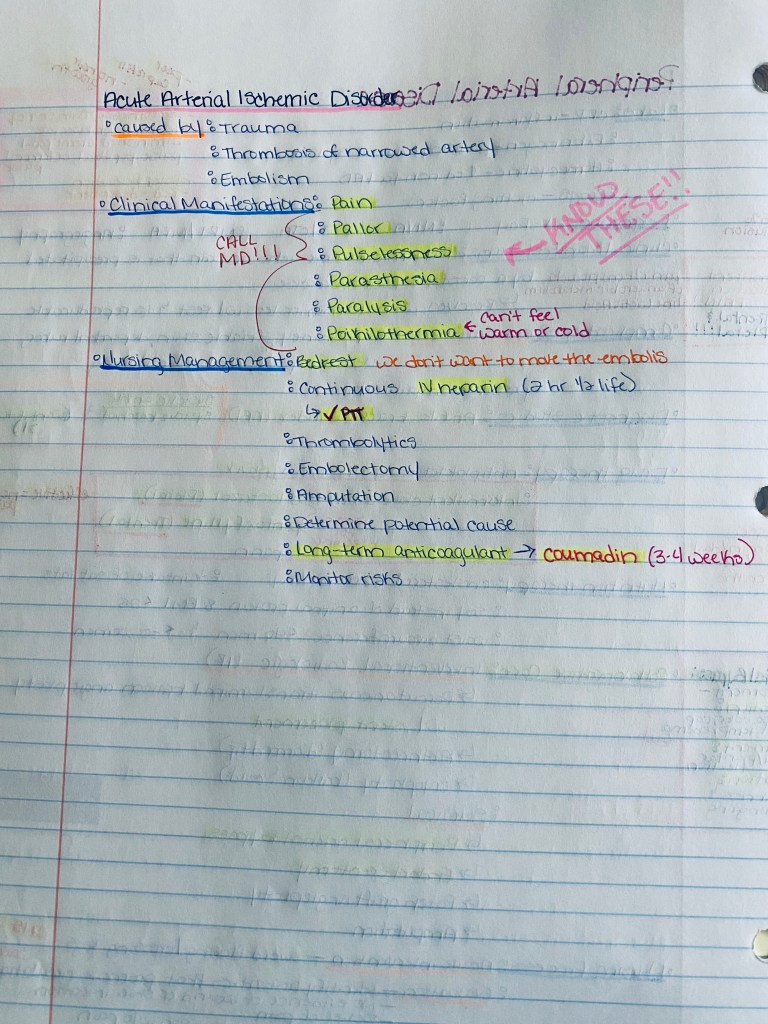 Acute Arterial Ischemic Disorders
° caused by: Trauma
Thrombosis of narrowed artery
Embolism
° Clinical Manifestations: Pain
Pallor
Pulselessness
Parasthesia
Paralysis
Poikilothermia ← can't feel warm or cold
CALL
MD!!!
← KNOW
THESE!!
° Nursing Management: Bedrest we don't want to move the embolis
Continuous IV heparin (2 hr 1/2 life)
↳ ✓ PTT
Thrombolytics
Embolectomy
Amputation
Determine potential cause
Long-term anticoagulant → coumadin (3-4 weeks)
Monitor risks